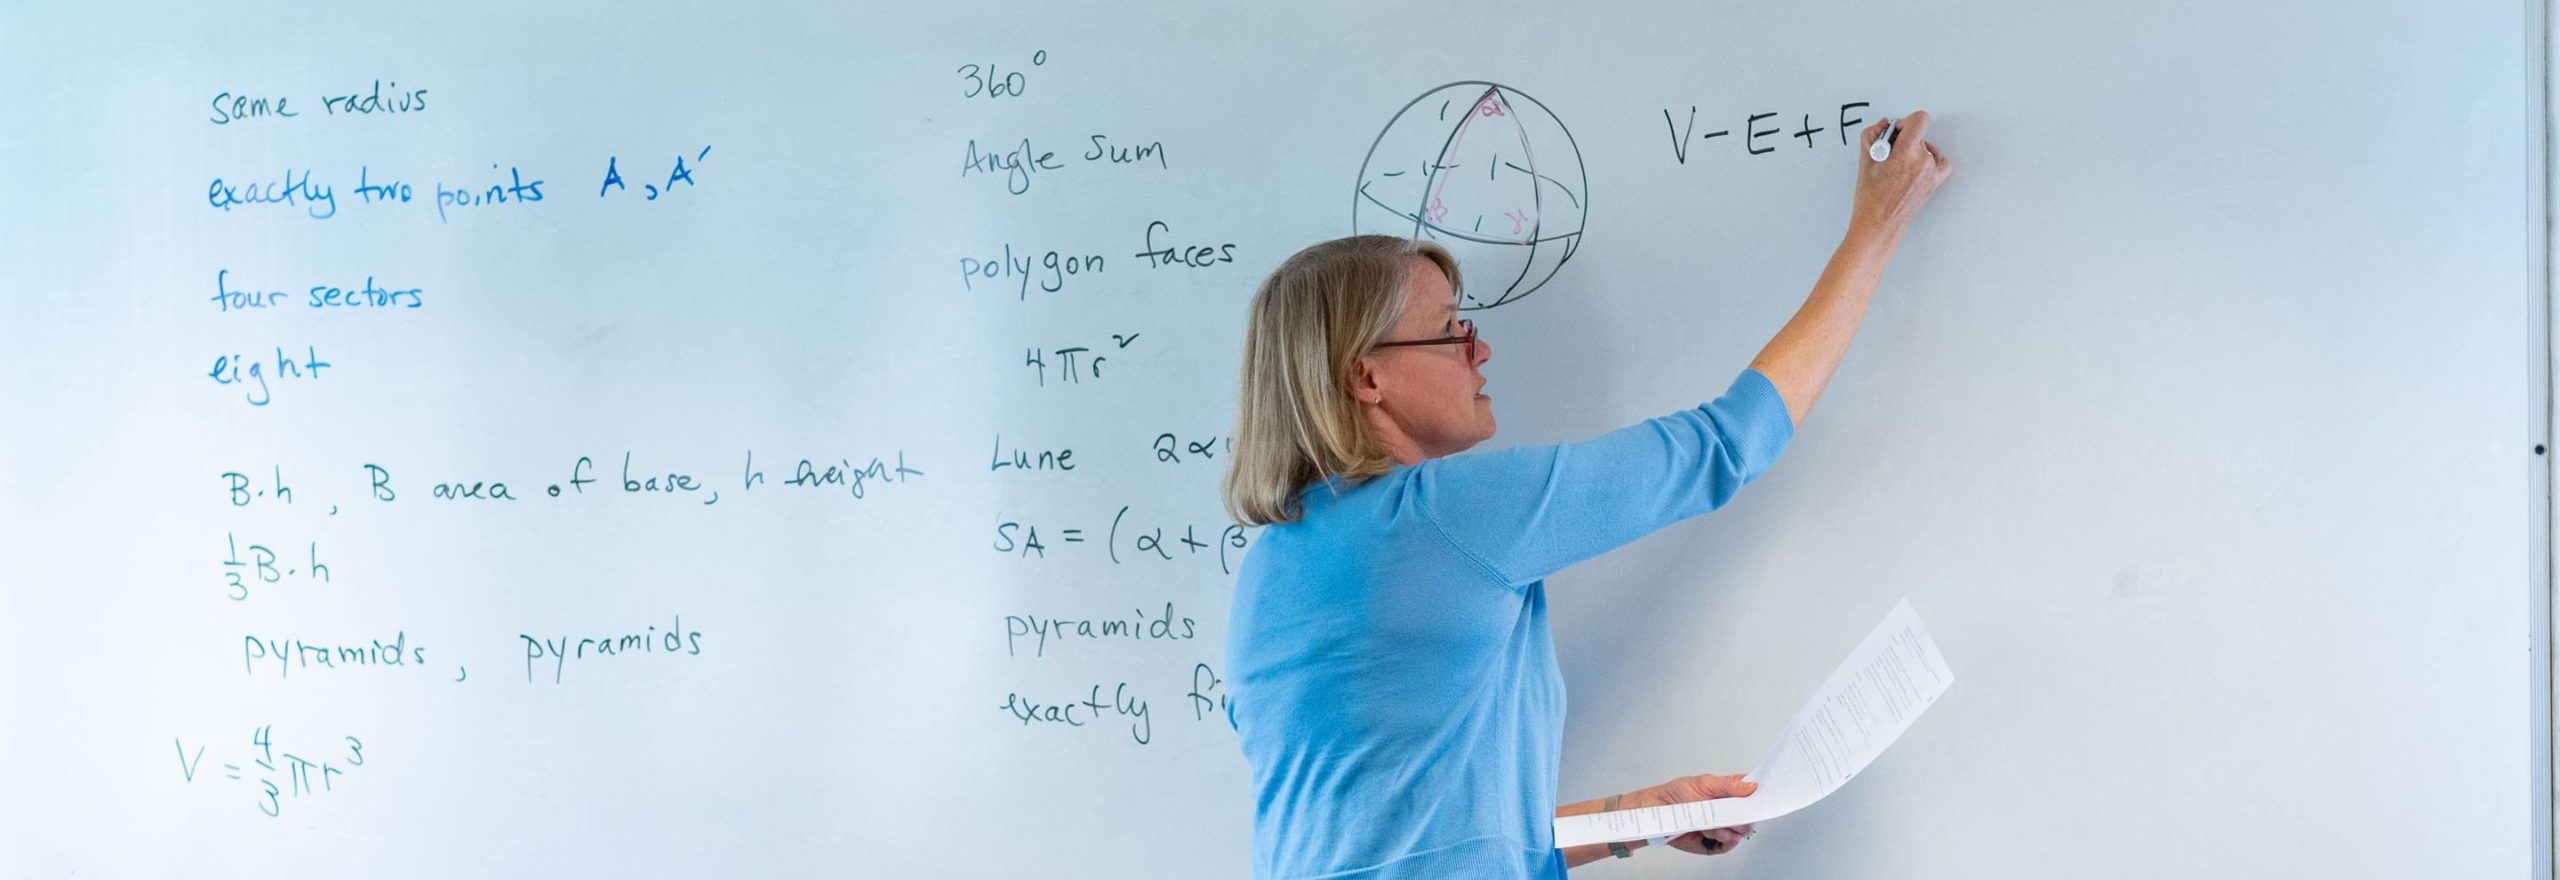 same radius
exactly two points A, A′
four sectors
eight
B·h, B area of base, h height
1/3 B·h
pyramids, pyramids
V = 4/3 πr³
360°
Angle sum
polygon faces
4πr²
Lune 2α
SA = (α + β
pyramids
exactly fi
α
β γ
V - E + F